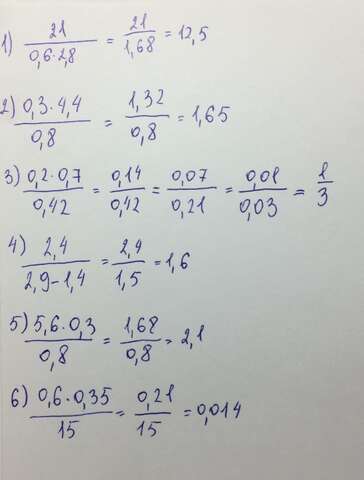 1) 21/(0,6·2,8) = 21/1,68 = 12,5
2) (0,3·4,4)/0,8 = 1,32/0,8 = 1,65
3) (0,2·0,7)/0,42 = 0,14/0,42 = 0,07/0,21 = 0,01/0,03 = 1/3
4) 2,4/(2,9-1,4) = 2,4/1,5 = 1,6
5) (5,6·0,3)/0,8 = 1,68/0,8 = 2,1
6) (0,6·0,35)/15 = 0,21/15 = 0,014